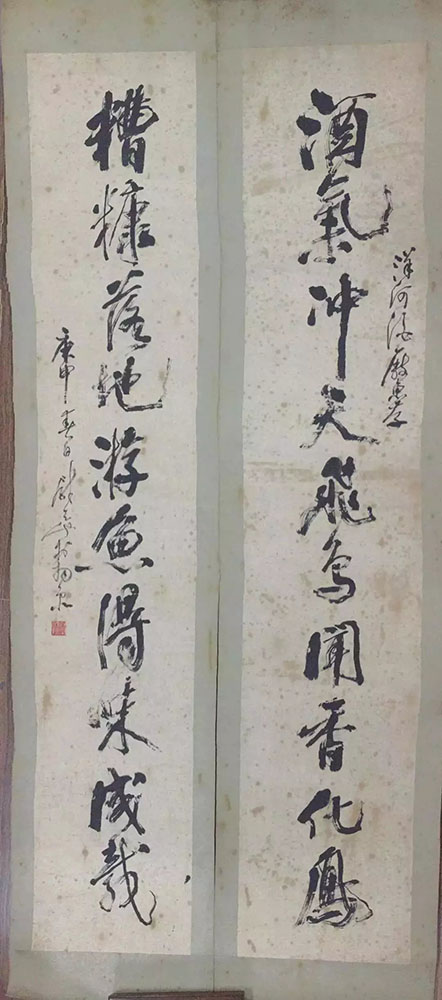 酒氣冲天飛鳥聞香化鳳
洋河酒廠
糟糠落地游魚得味成龍
庚申春日